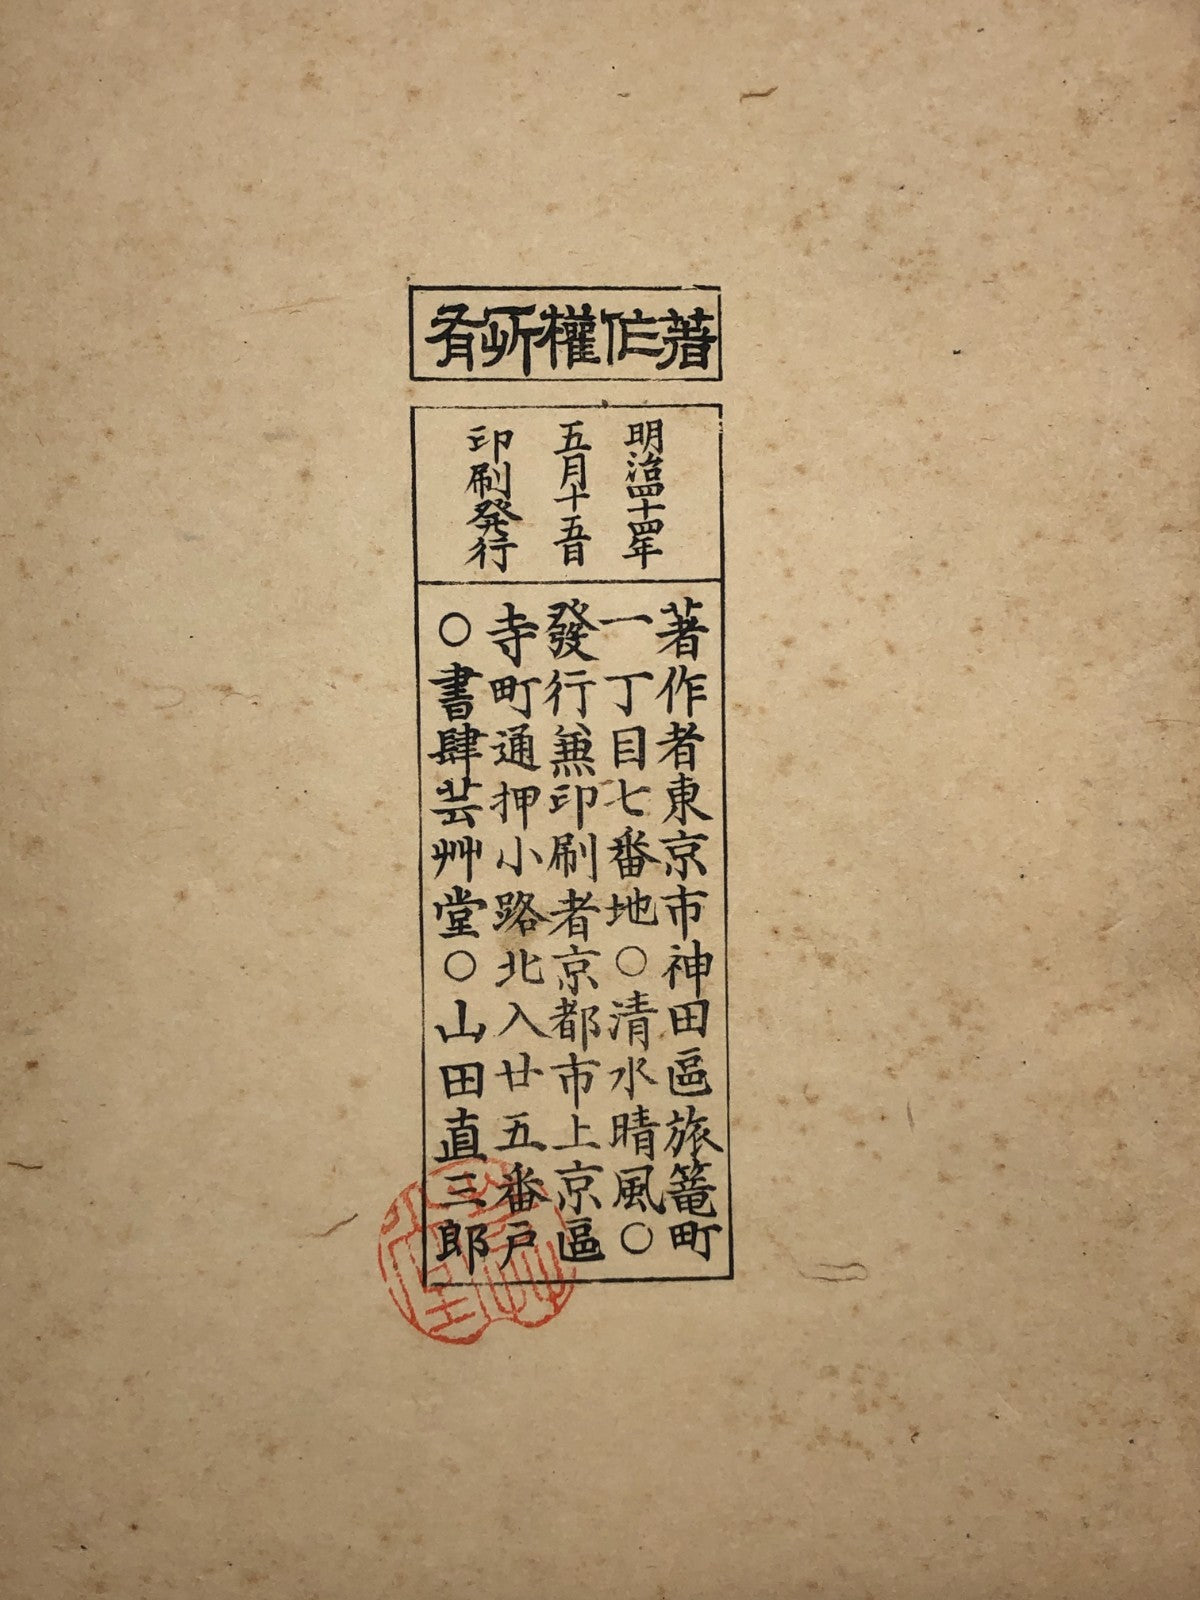 著作權所有
明治四十四年
五月十五日
印刷発行
著作者東京市神田區旅篭町
一丁目七番地○清水晴風○
發行兼印刷者京都市上京區
寺町通押小路北入廿五番戸
○書肆芸艸堂○山田直三郎